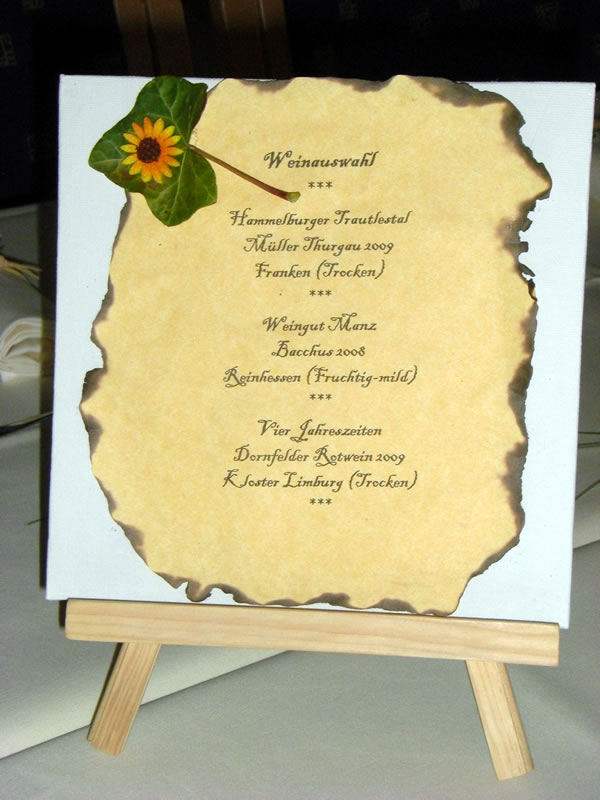 Weinauswahl
***
Hammelburger Trautlestal
Müller Thurgau 2009
Franken (Trocken)
***
Weingut Manz
Bacchus 2008
Reinhessen (Fruchtig-mild)
***
Vier Jahreszeiten
Dornfelder Rotwein 2009
Kloster Limburg (Trocken)
***